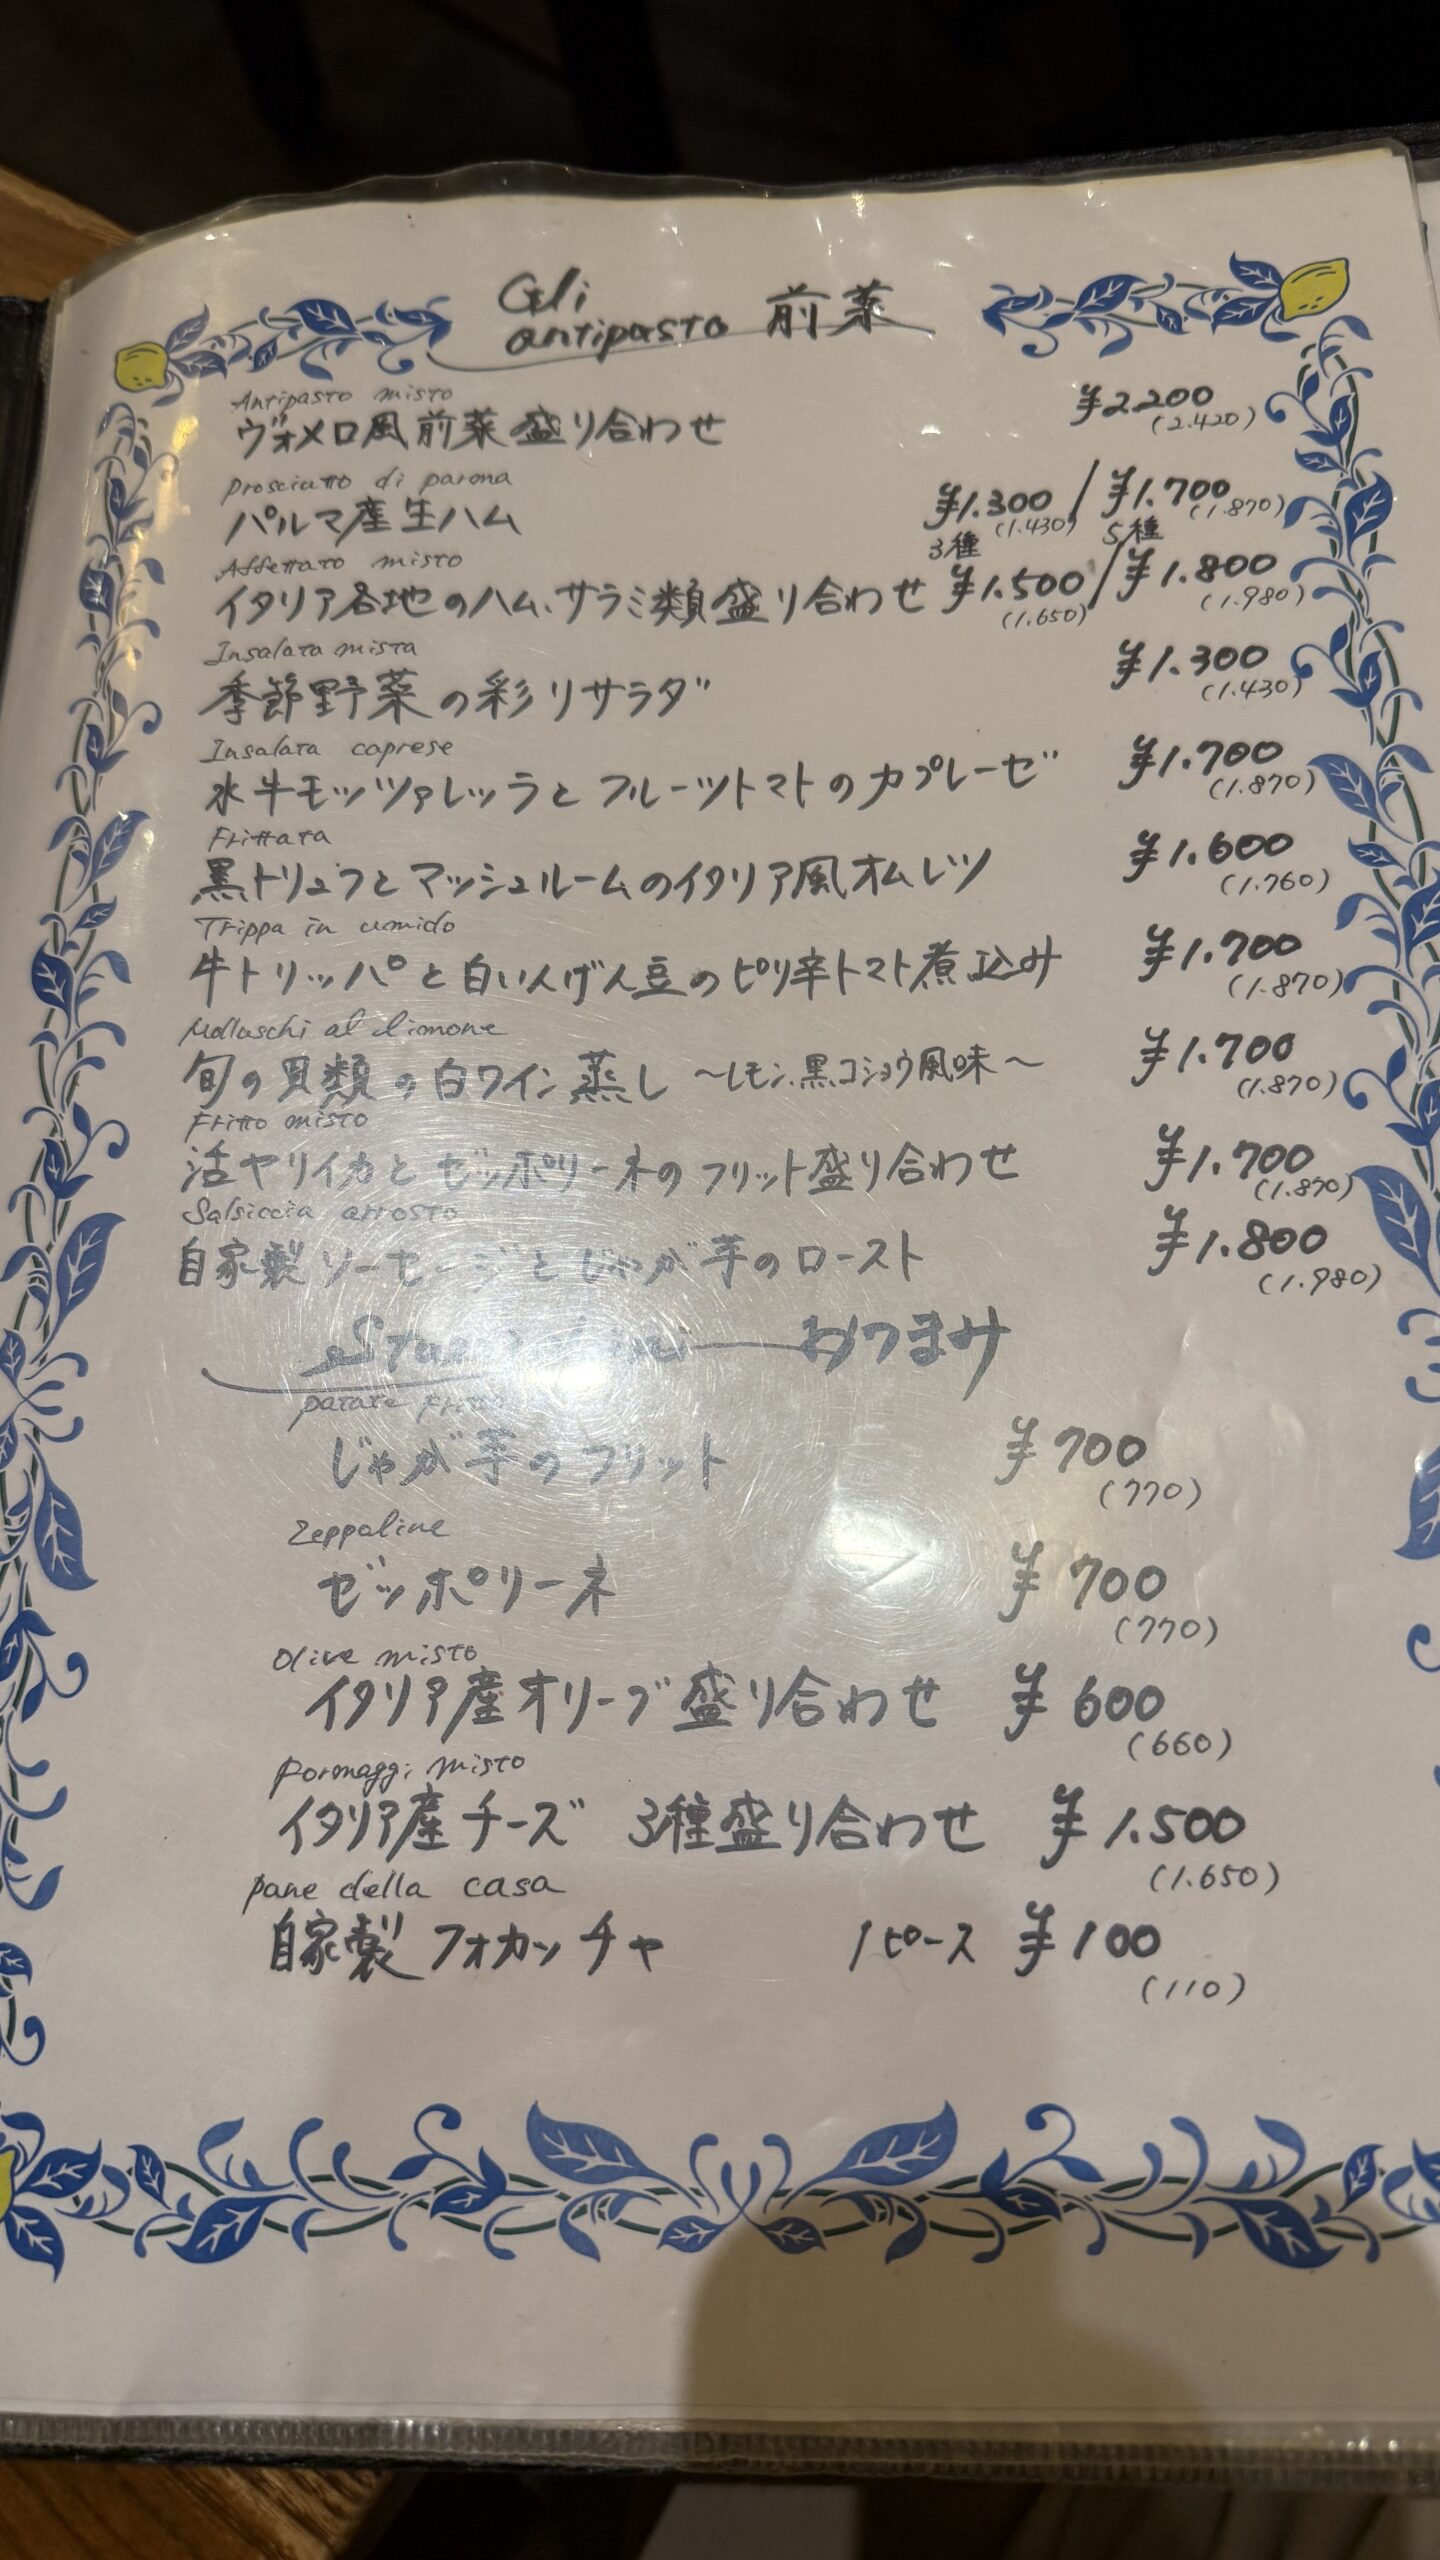 Gli
antipasto 前菜
Antipasto misto
ヴォメロ風前菜盛り合わせ ¥2.200
(2.420)
Prosciutto di parma
パルマ産生ハム ¥1.300 (1.430) / ¥1.700 (1.870)
Affettato misto 3種 5種
イタリア各地のハム、サラミ類盛り合わせ ¥1.500 / ¥1.800
(1.650) (1.980)
Insalata mista
季節野菜の彩りサラダ ¥1.300
(1.430)
Insalata caprese
水牛モッツァレッラとフルーツトマトのカプレーゼ ¥1.700
(1.870)
Frittata
黒トリュフとマッシュルームのイタリア風オムレツ ¥1.600
(1.760)
Trippa in umido
牛トリッパと白いんげん豆のピリ辛トマト煮込み ¥1.700
(1.870)
Molluschi al limone
旬の貝類の白ワイン蒸し ～レモン、黒コショウ風味～ ¥1.700
(1.870)
Fritto misto
活ヤリイカとゼッポリーネのフリット盛り合わせ ¥1.700
(1.870)
Salsiccia arrosto
自家製ソーセージとじゃが芋のロースト ¥1.800
(1.980)
おつまみ
patate
じゃが芋のフリット ¥700
(770)
Zeppoline
ゼッポリーネ ¥700
(770)
Olive misto
イタリア産オリーブ盛り合わせ ¥600
(660)
Formaggi misto
イタリア産チーズ 3種盛り合わせ ¥1.500
(1.650)
pane della casa
自家製フォカッチャ 1ピース ¥100
(110)